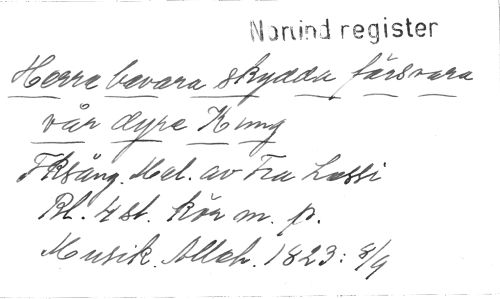 Norlind register
Herre bevara skydda försvara
vår dyre Kung
Fksång. Mel. av Fra Lassi
Bl. 4 st. kör m. p.
Musik. Allah. 1823: 8/9